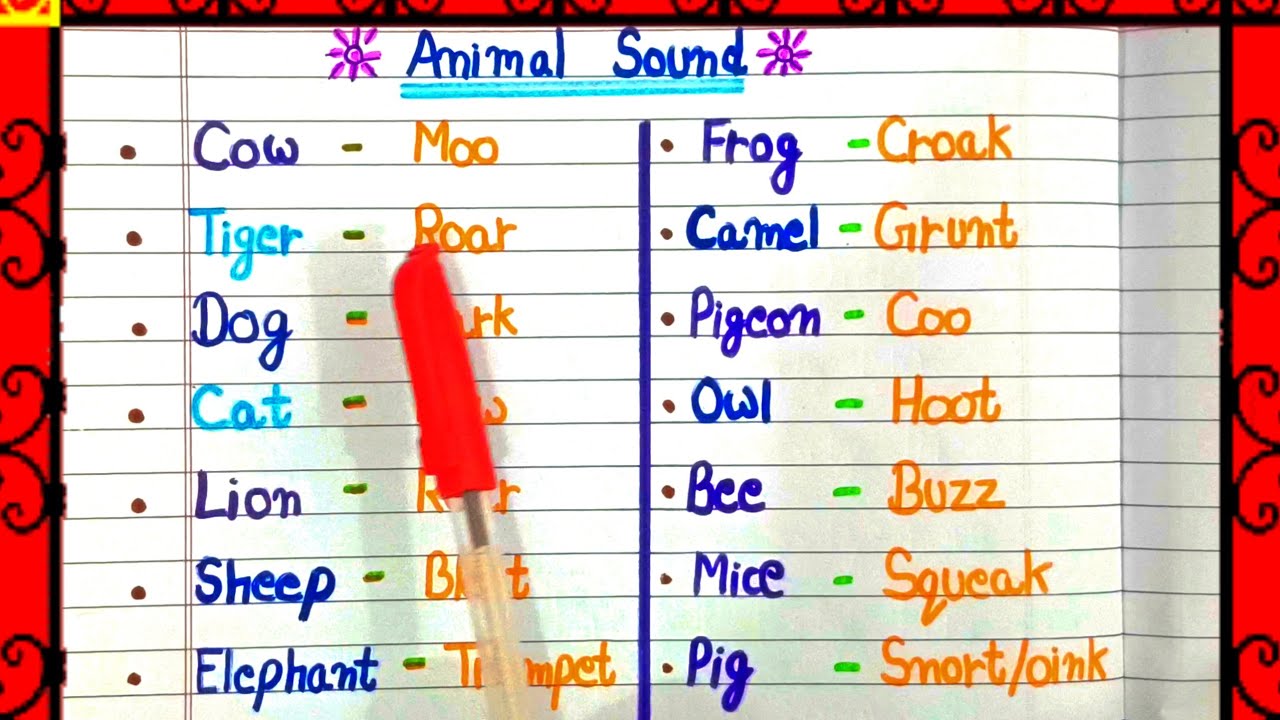 Animal Sound
Cow - Moo
Tiger - Roar
Dog -
Cat -
Lion -
Sheep -
Elephant - Trumpet
Frog - Croak
Camel - Grunt
Pigeon - Coo
Owl - Hoot
Bee - Buzz
Mice - Squeak
Pig - Snort/oink